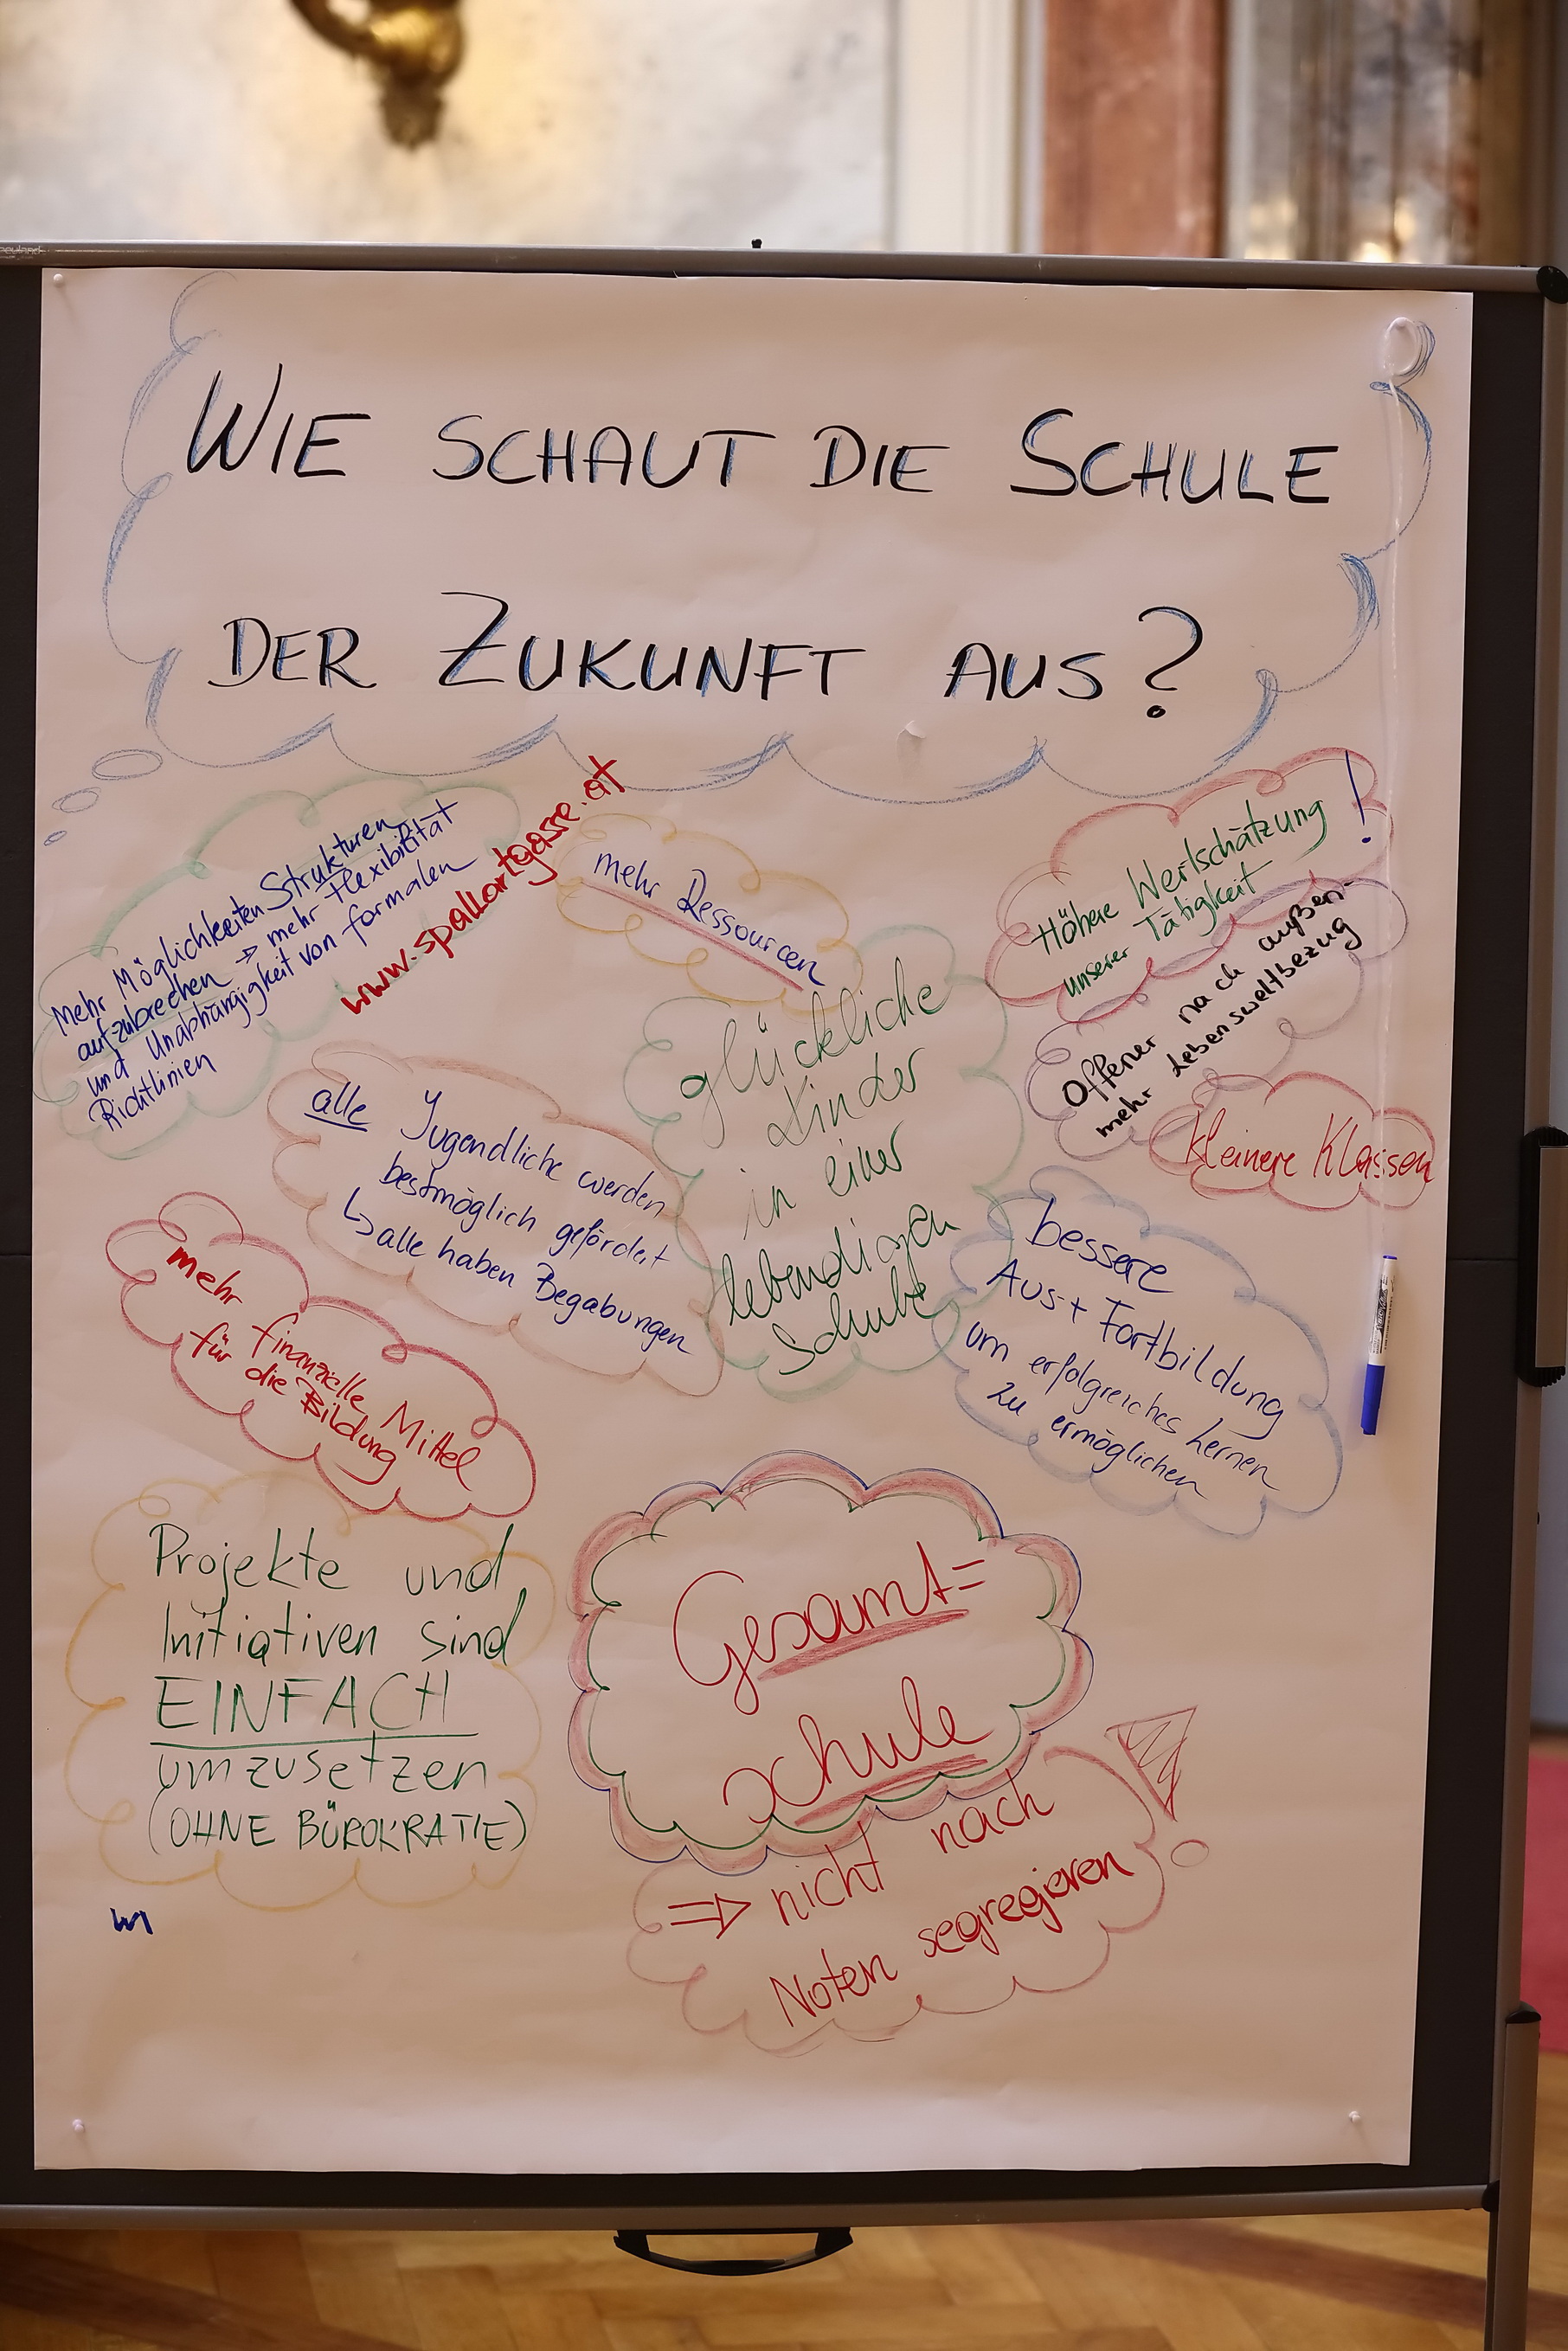 WIE SCHAUT DIE SCHULE
DER ZUKUNFT AUS?
Mehr Möglichkeiten Strukturen
aufzubrechen ⇒ mehr Flexibilität
und Unabhängigkeit von formalen
Richtlinien
www.spallartgasse.at
mehr Ressourcen
Höhere Wertschätzung !
unserer Tätigkeit
Offener nach außen-
mehr Lebensweltbezug
kleinere Klassen
glückliche
Kinder
in einer
lebendigen
Schule
alle Jugendliche werden
bestmöglich gefördert
↳ alle haben Begabungen
bessere
Aus- + Fortbildung
um erfolgreiches Lernen
zu ermöglichen
mehr finanzielle Mittel
für die Bildung
Projekte und
Initiativen sind
EINFACH
umzusetzen
(OHNE BÜROKRATIE)
Gesamt=
schule
⇒ nicht nach !
Noten segregieren